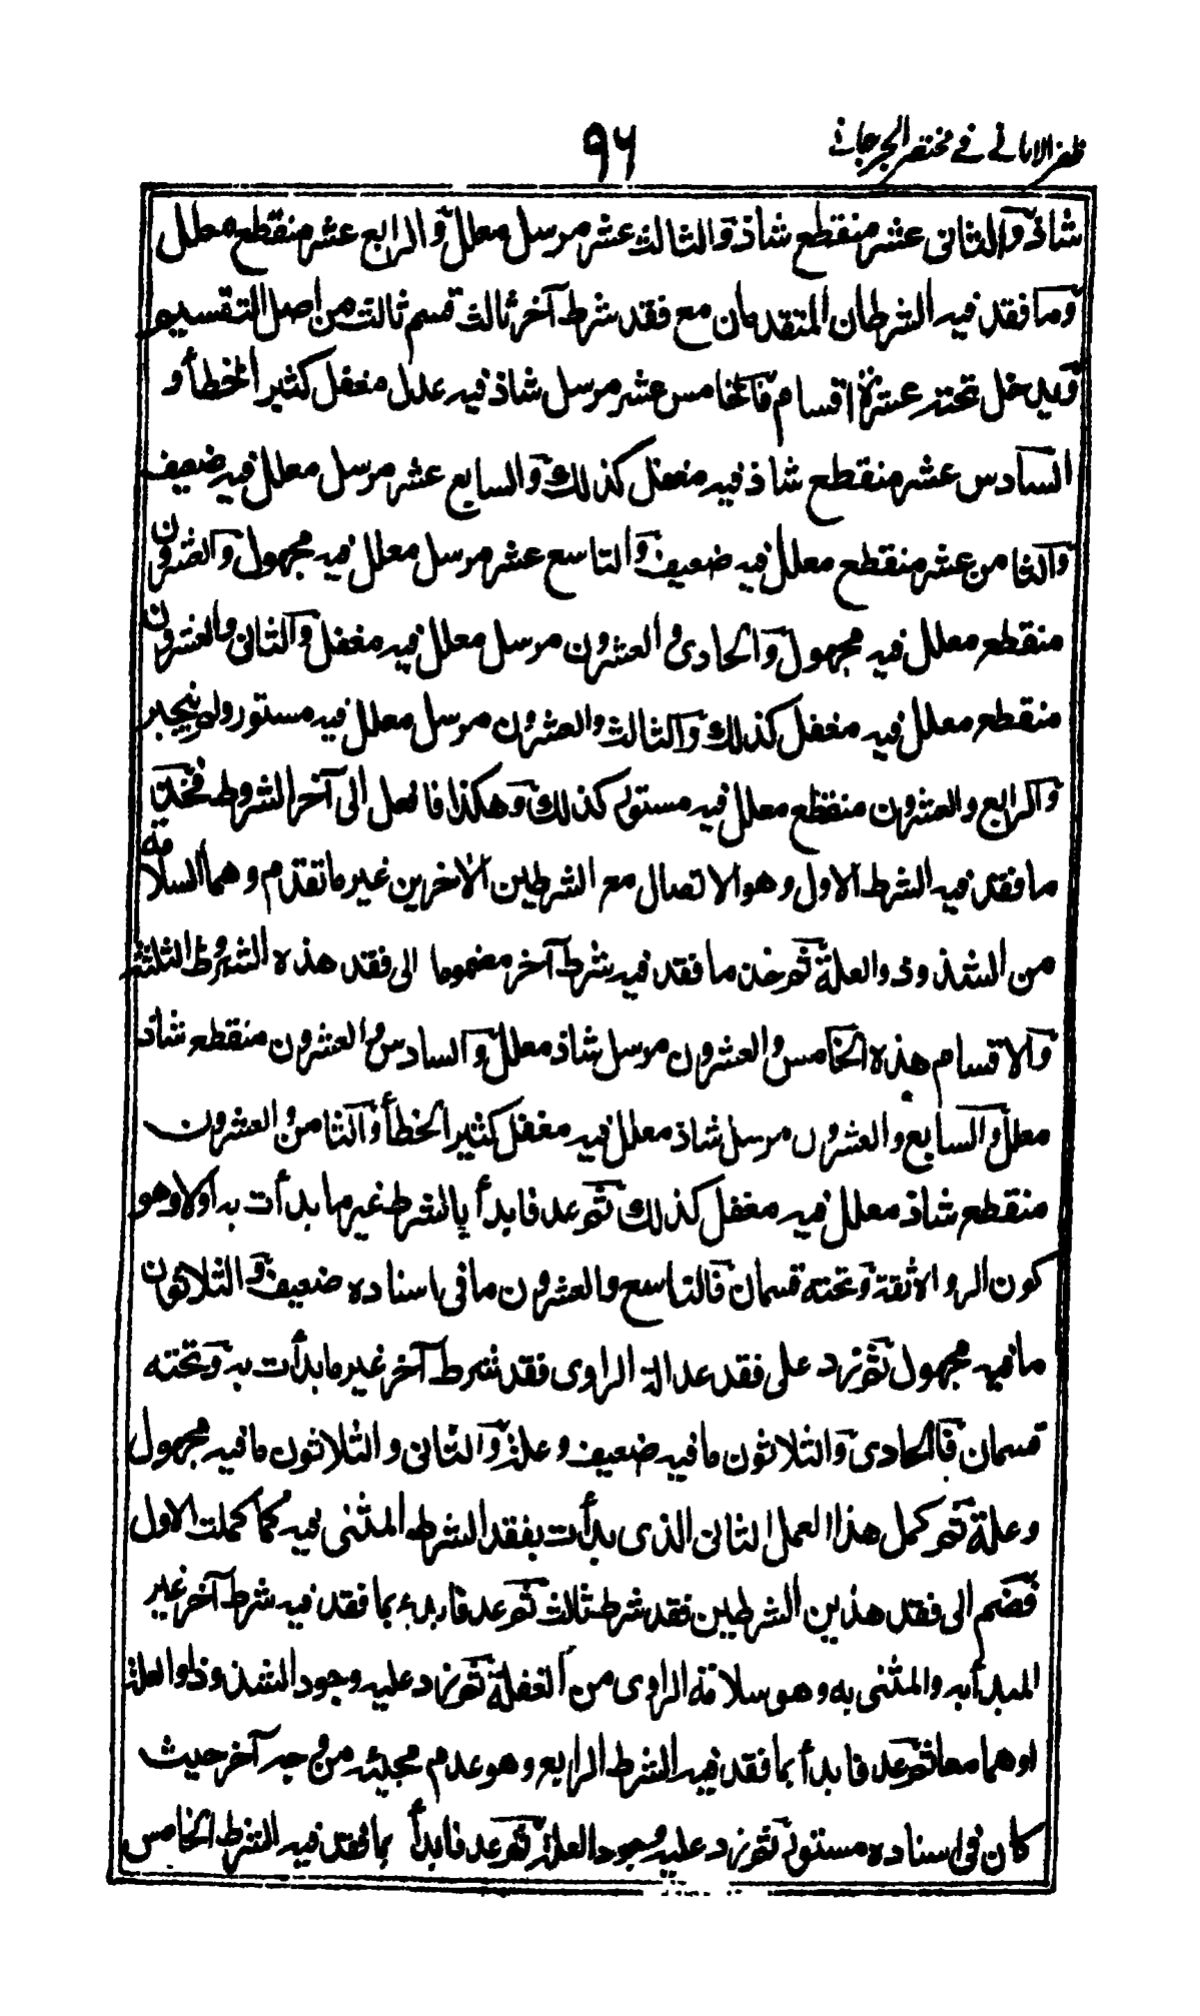 ظفر الامانی فی مختصر الجرجانی
٩٦
شاذ والثانی عشر منقطع شاذ والثالث عشر مرسل معلل والرابع عشر منقطع معلل
وما فقد فیه الشرطان المتقدمان مع فقد شرط آخر ثالث قسم ثالث من اصل التقسیم
ویدخل تحته عشرة اقسام فالخامس عشر مرسل شاذ فیه عدل مغفل کثیر الخطأ و
السادس عشر منقطع شاذ فیه مغفل کذلک والسابع عشر مرسل معلل فیه ضعیف
والثامن عشر منقطع معلل فیه ضعیف والتاسع عشر مرسل معلل فیه مجهول والعشرون
منقطع معلل فیه مجهول والحادی والعشرون مرسل معلل فیه مغفل والثانی والعشرون
منقطع معلل فیه مغفل کذلک والثالث والعشرون مرسل معلل فیه مستور ولم ینجبر
والرابع والعشرون منقطع معلل فیه مستور کذلک وهکذا فافعل الی آخر الشروط فخذ
ما فقد فیه الشرط الاول وهو الاتصال مع الشرطین الآخرین غیر ما تقدم وهما السلامة
من الشذوذ والعلة ثم خذ ما فقد فیه شرط آخر مضموما الی فقد هذه الشروط الثلثة
والاقسام هذه الخامس والعشرون مرسل شاذ معلل والسادس والعشرون منقطع شاذ
معلل والسابع والعشرون مرسل شاذ معلل فیه مغفل کثیر الخطأ والثامن والعشرون
منقطع شاذ معلل فیه مغفل کذلک ثم عد فابدأ بالشرط غیر ما بدأت به اولا وهو
کون الرواة ثقة وتحته قسمان فالتاسع والعشرون ما فی اسناده ضعیف والثلاثون
ما فیه مجهول ثم زد علی فقد عدالة الراوی فقد شرط آخر غیر ما بدأت به وتحته
قسمان فالحادی والثلاثون ما فیه ضعیف وعلة والثانی والثلاثون ما فیه مجهول
وعلة ثم کمل هذا العمل الثانی الذی بدأت بفقد الشرط المثنی فیه کما کملت الاول
فضم الی فقد هذین الشرطین فقد شرط ثالث ثم عد فابدء بما فقد فیه شرط آخر غیر
المبدأ به والمثنی به وهو سلامة الراوی من الغفلة ثم زد علیه وجود الشذوذ او العلة
او هما معا ثم عد فابدأ بما فقد فیه الشرط الرابع وهو عدم مجیئه من وجه آخر حیث
کان فی اسناده مستور ثم زد علیه وجود العلة ثم عد فابدأ بما فقد فیه الشرط الخامس